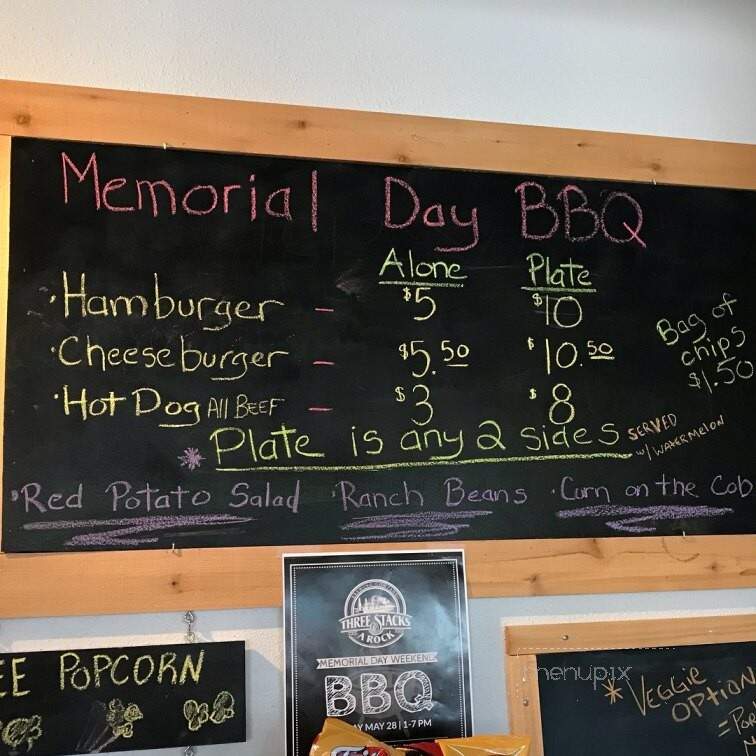 Memorial Day BBQ
Alone Plate
·Hamburger - $5 $10
·Cheeseburger - $5.50 $10.50
·Hot Dog All Beef - $3 $8
Bag of
chips
$1.50
*Plate is any 2 sides
SERVED
w/ WATERMELON
·Red Potato Salad ·Ranch Beans ·Curn on the Cob
EE POPCORN
THREE STACKS
A ROCK
MEMORIAL DAY WEEKEND
BBQ
Y MAY 28 | 1-7 PM
menupix
* VEGGIE
OPTION